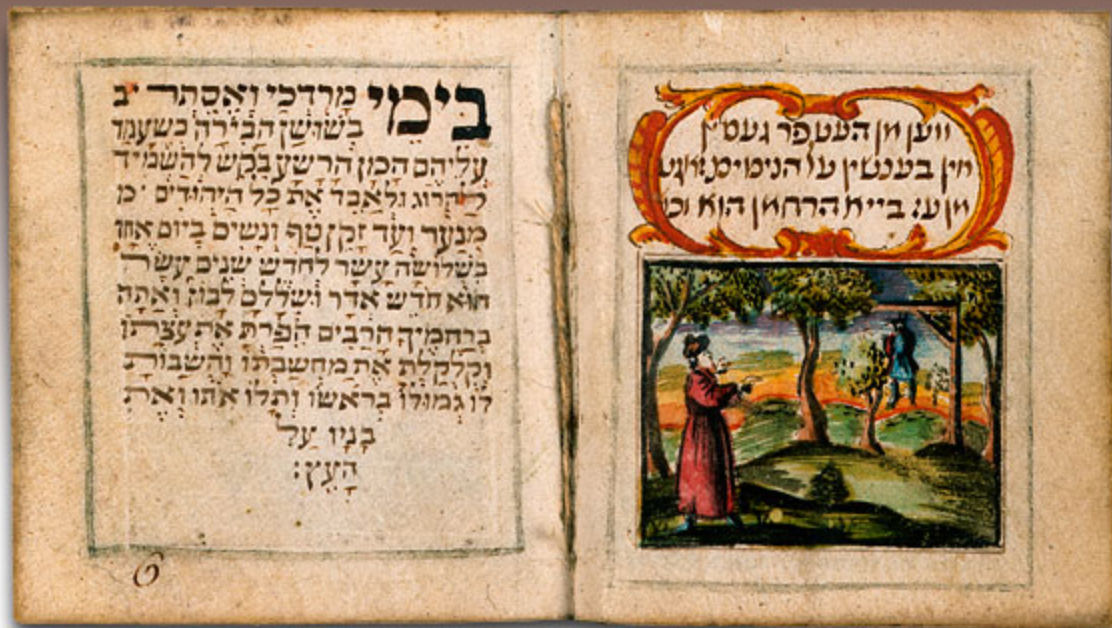 בִּימֵי מָרְדְּכַי וְאֶסְתֵּר
בְּשׁוּשַׁן הַבִּירָה כְּשֶׁעָמַד
עֲלֵיהֶם הָמָן הָרָשָׁע בִּקֵּשׁ לְהַשְׁמִיד
לַהֲרוֹג וּלְאַבֵּד אֶת כָּל הַיְּהוּדִים מ
מִנַּעַר וְעַד זָקֵן טַף וְנָשִׁים בְּיוֹם אֶחָד
בִּשְׁלוֹשָׁה עָשָׂר לְחֹדֶשׁ שְׁנֵים עָשָׂר
הוּא חֹדֶשׁ אֲדָר וּשְׁלָלָם לָבוֹז וְאַתָּה
בְּרַחֲמֶיךָ הָרַבִּים הֵפַרְתָּ אֶת עֲצָתוֹ
וְקִלְקַלְתָּ אֶת מַחֲשַׁבְתּוֹ וַהֲשֵׁבוֹתָ
לּוֹ גְמוּלוֹ בְרֹאשׁוֹ וְתָלוּ אֹתוֹ וְאֶת
בָּנָיו עַל
הָעֵץ:
ווען מן
על
מן הרחמן הוא